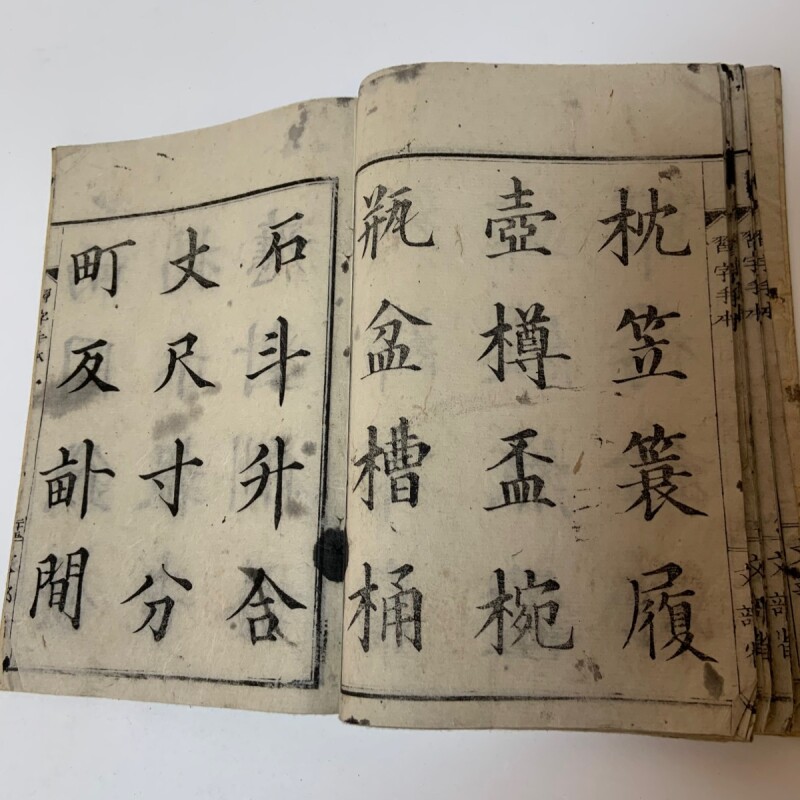 枕笠簑履
壺樽盃椀
瓶盆槽桶
石斗升合
丈尺寸分
町反畝間
習字手本
習字手本
文部省
文部省